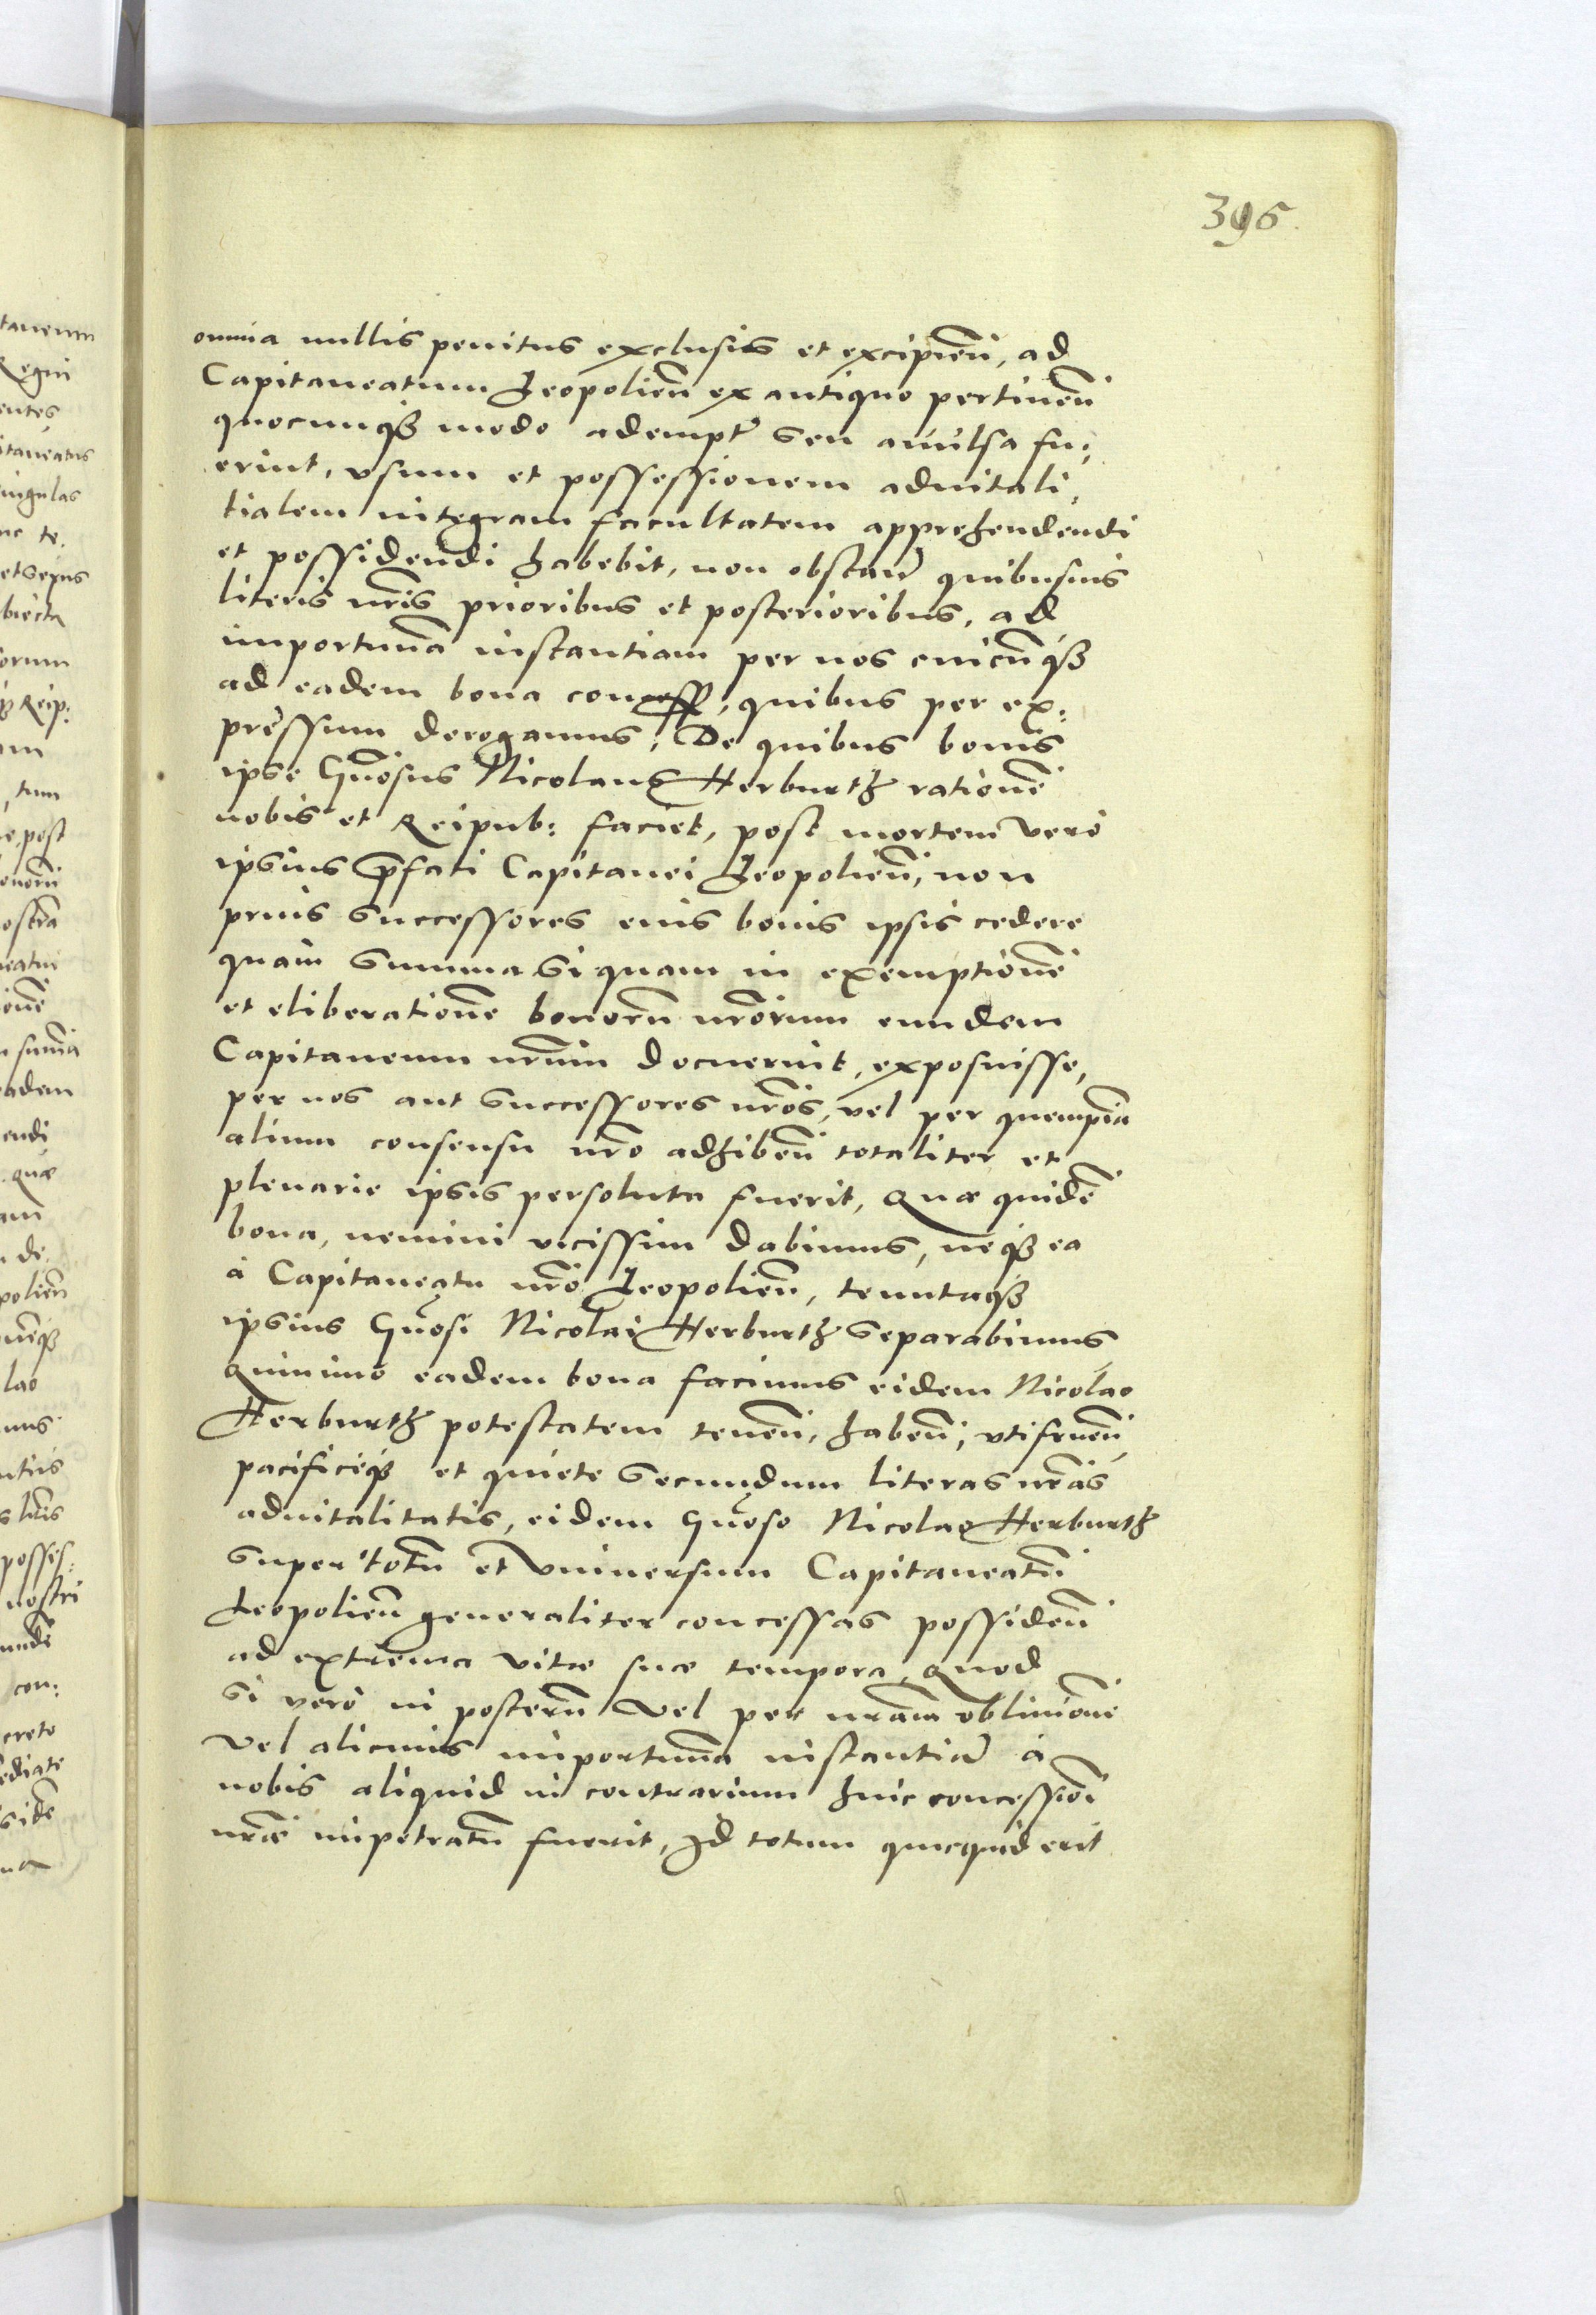 396.
omnia nullis penitus exclusis et excipien̄, ad
Capitaneatum Leopolien̄ ex antiquo pertinen̄
quocunqꝫ modo adempt̄ seu auulsa fu:
erint, vsum et possessionem aduitali,
tialem integram facultatem apprehendendi
et possidendi habebit, non obstan̄ quibusuis
literis nr̄is prioribus et posterioribus, ad
importunā instantiam per nos cuicūqꝫ
ad eadem bona concess, quibus per ex:
pressum derogamus, De quibus bonis
ipse Gn̄osus Nicolaus Herburth rationē
nobis et Reipub: faciet, post mortem vero
ipsius p̄fati Capitanei Leopolien̄, non
prius successores eius bonis ipsis cedere
quam summa si quam in exemptionē
et eliberationē bonorū nr̄orum eundem
Capitaneum nr̄um docuerint, exposuisse,
per nos aut successores nr̄os, vel per quempiā
alium consensu nr̄o adhiben̄ totaliter et
plenarie ipsis persoluta fuerit, Quæ quidē
bona, nemini vicissim dabimus, neqꝫ ea
à Capitaneatu nr̄o Leopolien̄, tenutaqꝫ
ipsius Gn̄osi Nicolai Herburth separabimus
Quinimo eadem bona facimus eidem Nicolao
Herburth potestatem tenen̄, haben̄, vtifruen̄
pacificeqꝫ et quiete secundum literas nr̄as
aduitalitatis, eidem Gn̄oso Nicolao Herburth
super totū et vniuersum Capitaneatū
Leopolien̄ generaliter concessas possiden̄
ad extrema vitæ suæ tempora, Quod
si vero in posterū vel per nr̄am obliuionē
Vel alicuius importunā instantiā à
nobis aliquid in contrarium huic concessioī
nr̄æ impetratū fuerit, Id totum quicquid erit